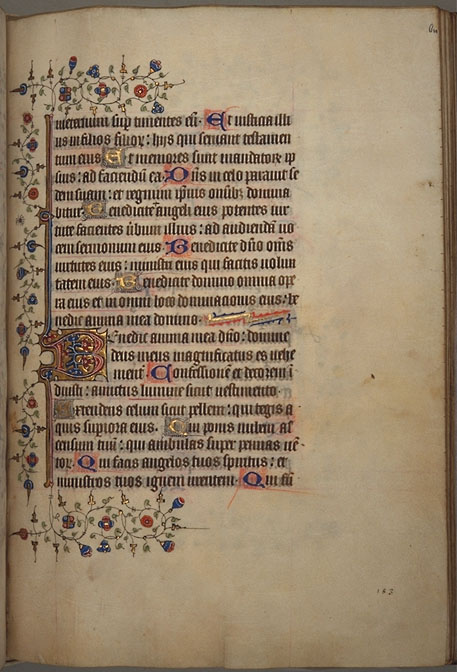 in eternum sup timentes eū. Et iusticia illi
us in filios filiorꝝ: hijs qui seruant testamen
tum eius. Et memores sunt mandatorꝝ ip
sius: ad faciendū ea. Dn̄s in celo parauit se
dem suam: et regnum ipsius omībꝫ domina
bitur. Benedicite angeli eius potentes uir
tute facientes ūbum illius: ad audiendā uo
cem sermonum eius. Benedicite dn̄o om̄s
uirtutes eius: ministri eius qui facitis uolun
tatem eius. Benedicite domino omnia ope
ra eius et in omni loco dominationis eius: be
nedic anima mea domino.
Benedic anima mea dn̄o: domine
deus meus magnificatus es uehe
ment̄. Confessionē et decorem ī
duisti: amictus lumine sicut uestimento.
Extendens celum sicut pellem: qui tegis a
quis supiora eius. Qui ponis nubem as
censum tuū: qui ambulas super pennas uē
torꝝ. Qui facis angelos tuos spiritus: et
ministros tuos ignem urentem. Qui fū
183